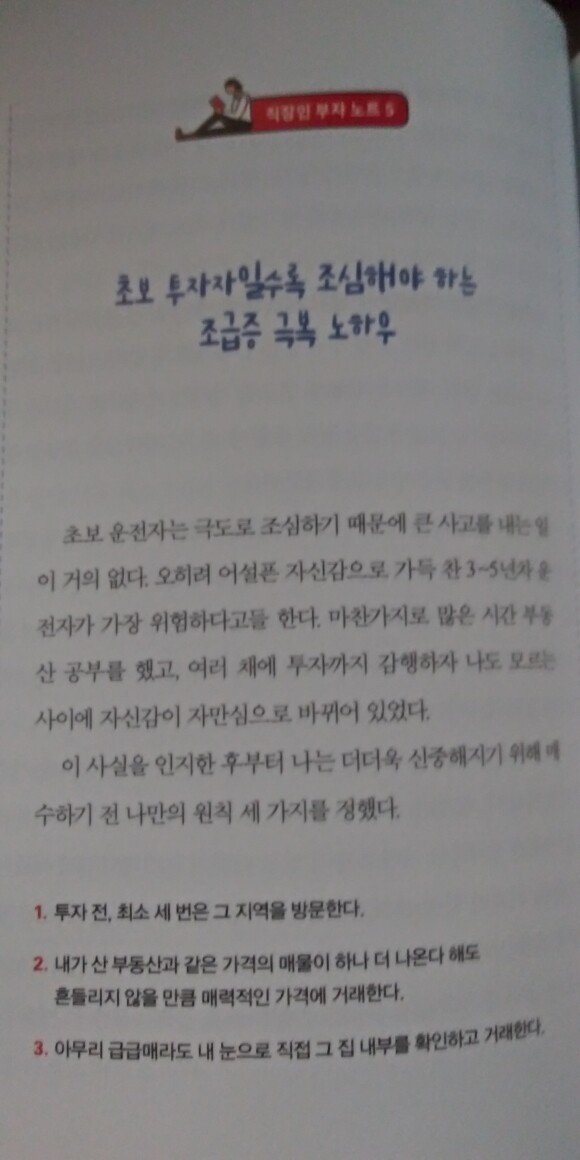 직장인 부자 노트 5
초보 투자자일수록 조심해야 하는
조급증 극복 노하우
초보 운전자는 극도로 조심하기 때문에 큰 사고를 내는 일
이 거의 없다. 오히려 어설픈 자신감으로 가득 찬 3~5년차 운
전자가 가장 위험하다고들 한다. 마찬가지로 많은 시간 부동
산 공부를 했고, 여러 채에 투자까지 감행하자 나도 모르는
사이에 자신감이 자만심으로 바뀌어 있었다.
이 사실을 인지한 후부터 나는 더더욱 신중해지기 위해 매
수하기 전 나만의 원칙 세 가지를 정했다.
1. 투자 전, 최소 세 번은 그 지역을 방문한다.
2. 내가 산 부동산과 같은 가격의 매물이 하나 더 나온다 해도
흔들리지 않을 만큼 매력적인 가격에 거래한다.
3. 아무리 급급매라도 내 눈으로 직접 그 집 내부를 확인하고 거래한다.